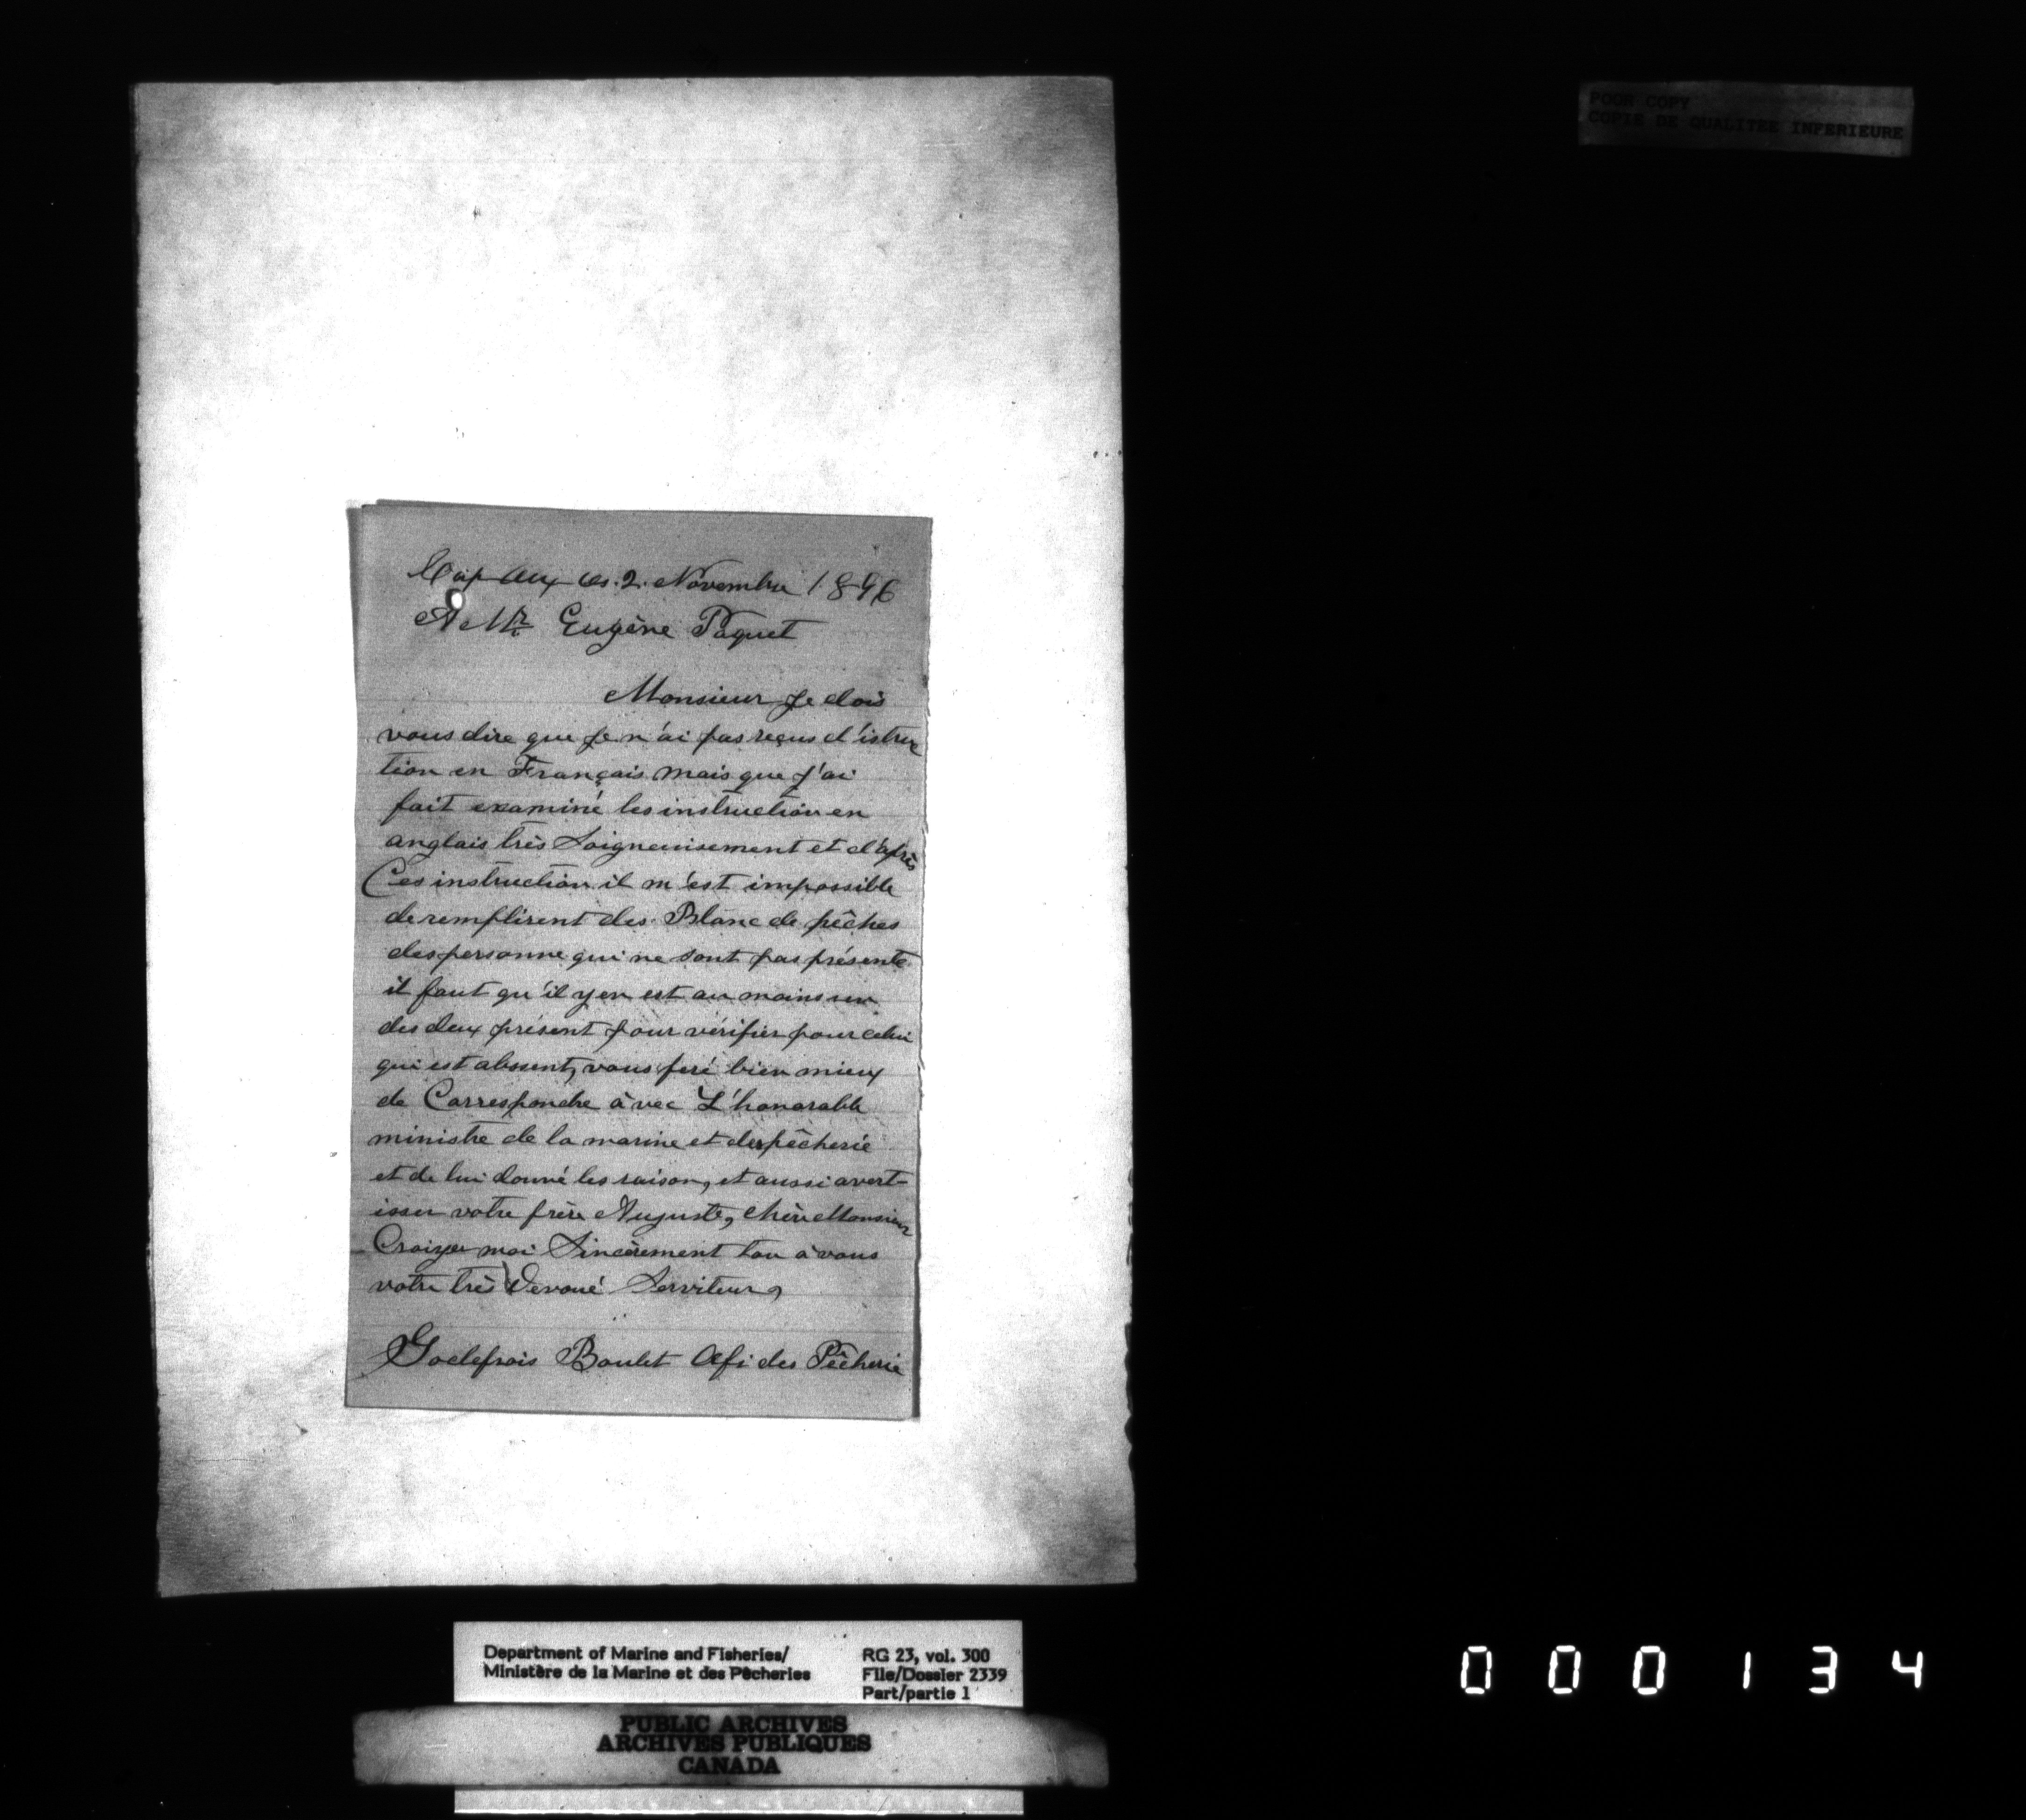 POOR COPY
COPIE DE QUALITEE INFERIEURE
Cap Aux Os. 2. Novembre 1896
A Mr. Eugène Paquet
Monsieur Je dois
vous dire que Je n'ai pas reçus d'istruc
tion en Français mais que J'ai
fait examiné les instruction en
anglais très Soigneusement et d'après
Ces instruction il m'est impossible
de remplirent des Blanc de pêches
des personne qui ne sont pas présente
il faut qu'il y en est au moins un
des deux présent pour vérifier pour celui
qui est abssent, vous feré bien mieux
de Correspondre àvec L'honorable
ministre de la marine et des pêcherie
et de lui donné les raison, et aussi avert-
isser votre frère Auguste, chère Monsieur
Croizer moi Sincèrement tou à vous
votre très Devoué Serviteur,
Godefrois Boulet Ofi des Pêcherie
Department of Marine and Fisheries/
Ministère de la Marine et des Pêcheries
RG 23, vol. 300
File/Dossier 2339
Part/partie 1
PUBLIC ARCHIVES
ARCHIVES PUBLIQUES
CANADA
000134